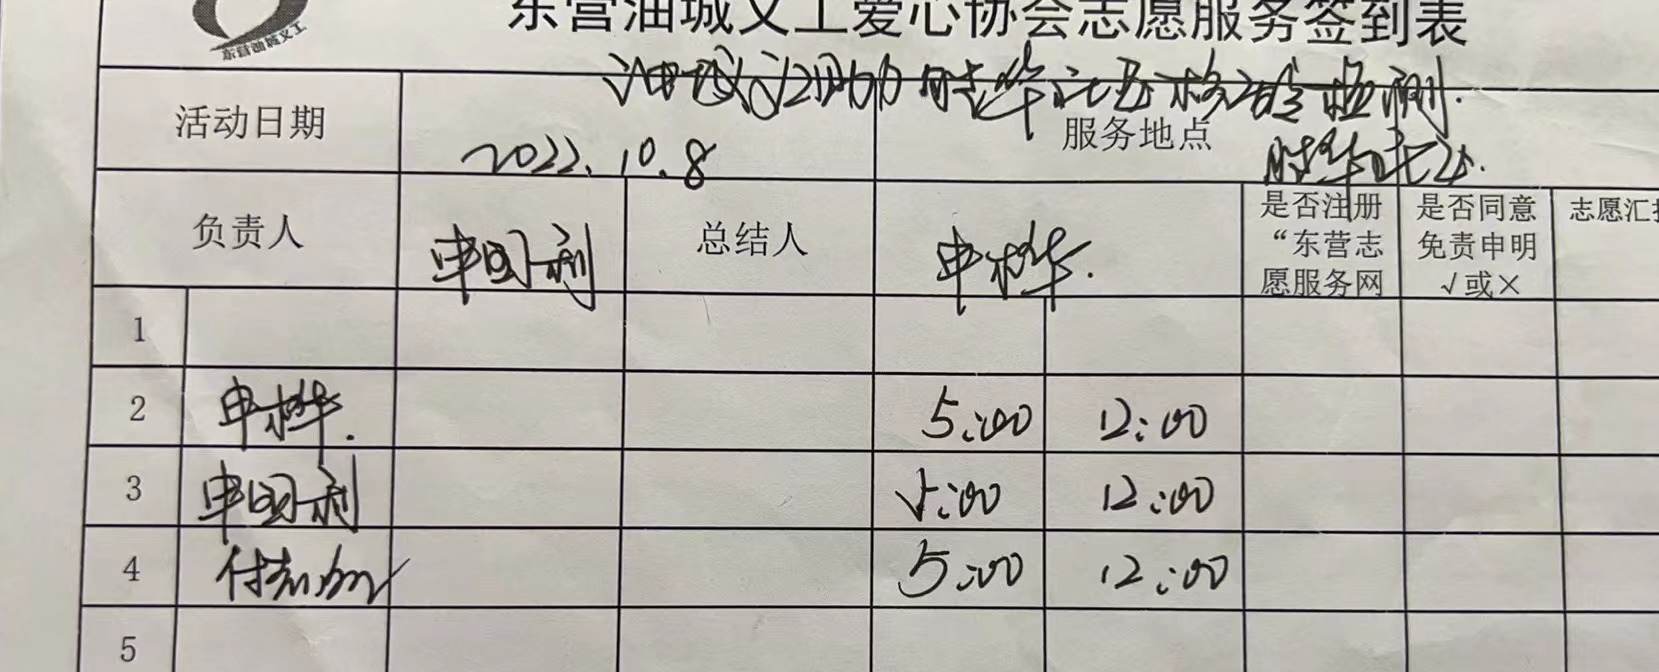 东营油城义工
东营油城义工爱心协会志愿服务签到表
油城义工协助时华社区核酸检测.
活动日期 2022.10.8 服务地点 时华社区.
负责人 申国利 总结人 申桦. 是否注册“东营志愿服务网 是否同意免责申明√或× 志愿汇
1
2 申桦. 5:00 12:00
3 申国利 5:00 12:00
4 5:00 12:00
5